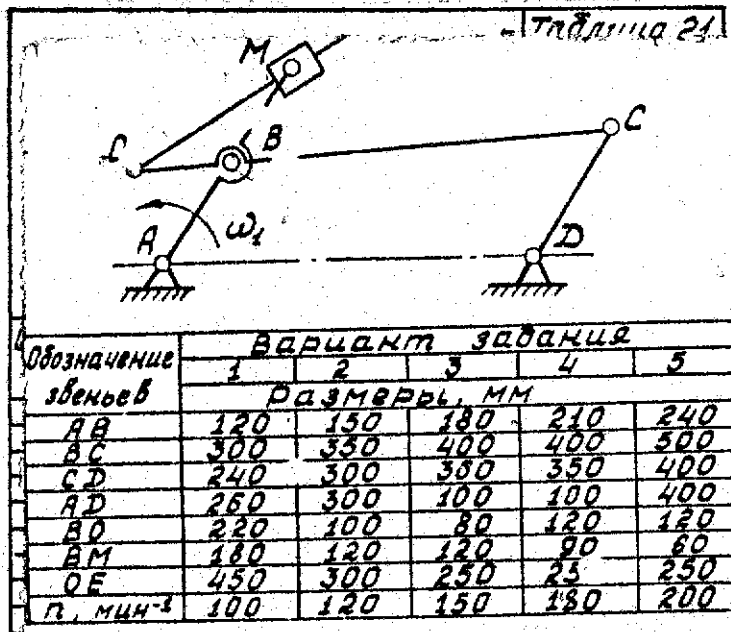 Таблица 21
M
B
C
A
ω₁
D
Обозначение звеньев
Вариант задания
1 2 3 4 5
Размеры, мм
AB 120 150 180 210 240
BC 300 350 400 400 500
CD 240 300 350 350 400
AD 260 300 100 100 400
BO 220 100 80 120 120
BM 180 120 120 90 60
OE 450 300 250 25 250
n, мин⁻¹ 100 120 150 180 200